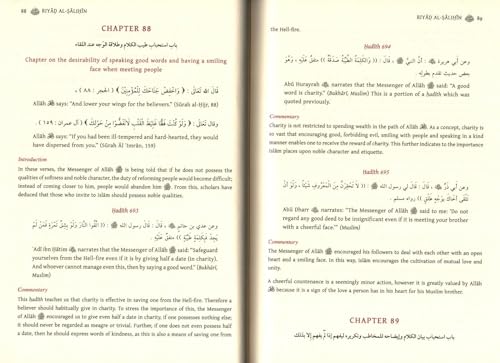 88 RIYĀḌ AL-ṢĀLIḤĪN
CHAPTER 88
باب استحباب طيب الكلام وطلاقة الوجه عند اللقاء
Chapter on the desirability of speaking good words and having a smiling
face when meeting people
قَالَ اللهُ تَعَالَى : ﴿ وَاخْفِضْ جَنَاحَكَ لِلْمُؤْمِنِينَ ﴾ ( الحجر : ٨٨ ) .
Allāh says: "And lower your wings for the believers." (Sūrah al-Ḥijr, 88)
وقال تعالى : ﴿ وَلَوْ كُنْتَ فَظًّا غَلِيظَ الْقَلْبِ لَانْفَضُّوا مِنْ حَوْلِكَ ﴾ ( آل عمران : ١٥٩ ) .
Allāh says: "If you had been ill-tempered and hard-hearted, they would
have dispersed from you." (Sūrah Āl ʿImrān, 159)
Introduction
In these verses, the Messenger of Allāh is being told that if he does not possess the
qualities of softness and noble character, the duty of reforming people would become difficult;
instead of coming closer to him, people would abandon him. From this, scholars have
deduced that those who invite to Islām should possess noble qualities.
Ḥadīth 693
وعن عدي بن حاتم ، قال : قال رسول الله : (( اتَّقُوا النَّارَ وَلَوْ بِشِقِّ تَمْرَةٍ فَمَنْ لَمْ
يَجِدْ فَبِكَلِمَةٍ طَيِّبَةٍ )) متفقٌ عليه .
ʿAdī ibn Ḥātim narrates that the Messenger of Allāh said: "Safeguard
yourselves from the Hell-fire even if it is by giving half a date (in charity).
And whoever cannot manage even this, then by saying a good word." (Bukhārī,
Muslim)
Commentary
This ḥadīth teaches us that charity is effective in saving one from the Hell-fire. Therefore a
believer should habitually give in charity. To stress the importance of this, the Messenger of
Allāh encouraged us to give even half a date in charity, if one possesses nothing else.
It should never be regarded as meagre or trivial. Further, if one does not even possess half
a date, then he should express words of kindness, as this is also a means of saving one from
RIYĀḌ AL-ṢĀLIḤĪN 89
the Hell-fire.
Ḥadīth 694
وعن أبي هريرة : أن النبيَّ ، قَالَ : (( وَالكَلِمَةُ الطَّيِّبَةُ صَدَقَةٌ )) متفقٌ عليه ، وهو
بعض حديث تقدم بطوله .
Abū Hurayrah narrates that the Messenger of Allāh said: "A good
word is charity." (Bukhārī, Muslim) This is a portion of a ḥadīth which was
quoted previously.
Commentary
Charity is not restricted to spending wealth in the path of Allāh. As a concept, charity is
so vast that encouraging good, forbidding evil, smiling with people and speaking in a kind
manner enables one to receive the reward of charity. This further indicates to the importance
Islām places upon noble character and etiquette.
Ḥadīth 695
وعن أبي ذَرٍّ ، قَالَ : قَالَ لي رسول الله : (( لَا تَحْقِرَنَّ مِنَ الْمَعْرُوفِ شَيْئًا ، وَلَوْ أَنْ
تَلْقَى أَخَاكَ بِوَجْهٍ طَلْقٍ )) رواه مسلم .
Abū Dharr narrates: "The Messenger of Allāh said to me: 'Do not
regard any good deed to be insignificant even if it is meeting your brother
with a cheerful face.'" (Muslim)
Commentary
The Messenger of Allāh encouraged his followers to deal with each other with an open
heart and a smiling face. In this way, Islām encourages the cultivation of mutual love and
unity.
A cheerful countenance is a seemingly minor action, however it is greatly valued by Allāh
because it is a sign of the love a person has in his heart for his Muslim brother.
CHAPTER 89
باب استحباب بيان الكلام وإيضاحه للمخاطب وتكريره ليفهم إذا لم يفهم إلا بذلك